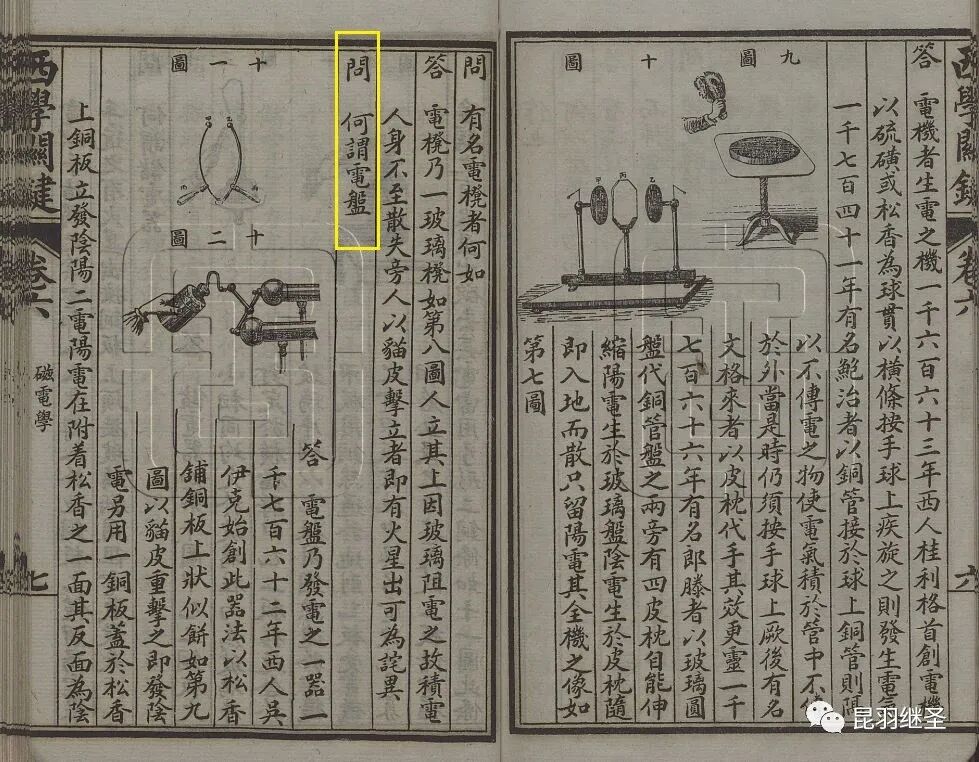 西學關鍵
卷六
六
九圖
十圖
答 電機者生電之機一千六百六十三年西人桂利格首創電機
以硫磺或松香為球貫以橫條按手球上疾旋之則發生電氣
一千七百四十一年有名鮑治者以銅管接於球上銅管則隔
以不傳電之物使電氣積於管中不傳
於外當是時仍須按手球上厥後有名
文格來者以皮枕代手其效更靈一千
七百六十六年有名郎滕者以玻璃圓
盤代銅管盤之兩旁有四皮枕自能伸
縮陽電生於玻璃盤陰電生於皮枕隨
即入地而散只留陽電其全機之像如
第七圖
問 有名電櫈者何如
答 電櫈乃一玻璃櫈如第八圖人立其上因玻璃阻電之故積電
人身不至散失旁人以貓皮擊立者即有火星出可為詫異
問 何謂電盤
十一圖
十二圖
答 電盤乃發電之一器一
千七百六十二年西人吳
伊克始創此器法以松香
舖銅板上狀似餅如第九
圖以貓皮重擊之即發陰
電另用一銅板蓋於松香
上銅板立發陰陽二電陽電在附着松香之一面其反面為陰
西學關鍵
卷六
磁電學
七
昆羽继圣